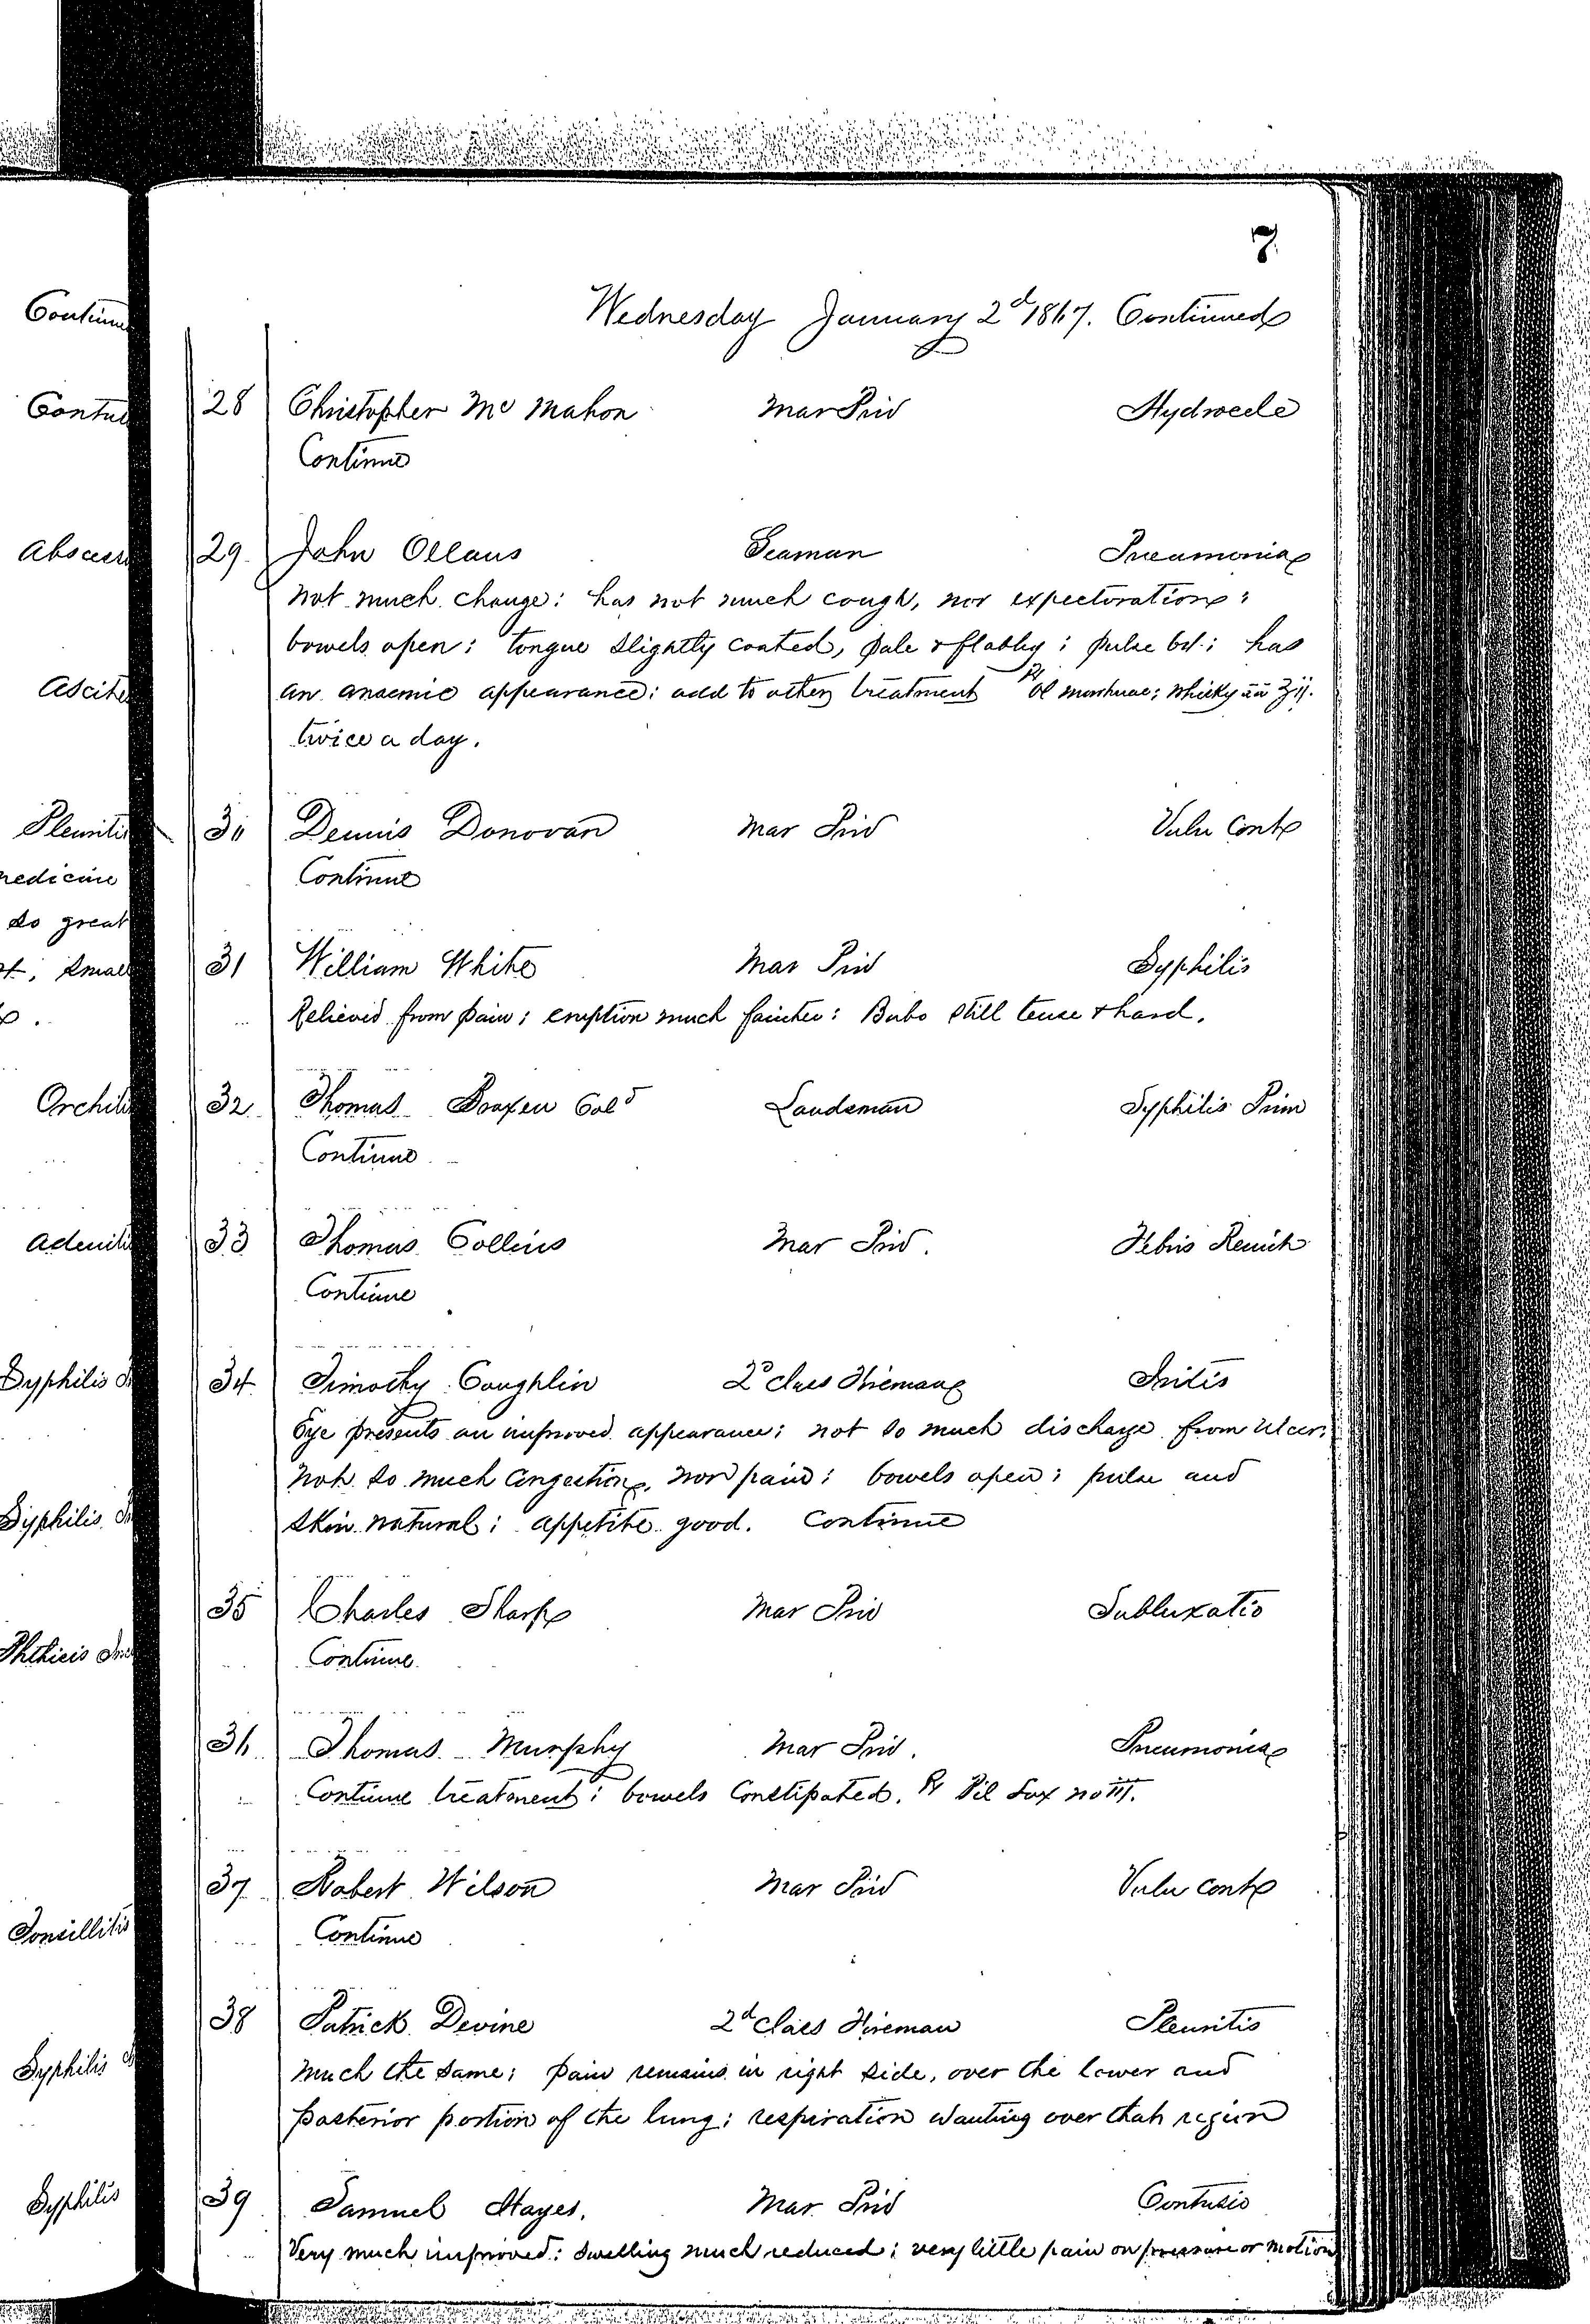 7
Wednesday January 2d 1867. Continued
28 Christopher Mc Mahon Mar Priv Hydrocele
Continue
29 John Ollaus Seaman Pneumonia
not much change: has not much cough, nor expectoration:
bowels open: tongue slightly coated, pale & flabby: pulse
an anaemic appearance: add to other treatment ℞ Ol morhuae; whisky āā ʒij.
twice a day.
30 Dennis Donovan Mar Priv Vuln Cont
Continue
31 William White Mar Priv Syphilis
Relieved from pain; eruption much fainter: Bubo still tense & hard.
32 Thomas Col'd Landsman Syphilis Prim
Continue
33 Thomas Collins Mar Priv. Febris Remitt
Continue
34 Timothy Coughlin 2d Class Fireman Iritis
Eye presents an improved appearance; not so much discharge from Ulcer;
not so much congestion, nor pain: bowels open; pulse and
skin natural; appetite good. Continue
35 Charles Sharp Mar Priv Subluxatio
Continue
36 Thomas Murphy Mar Priv. Pneumonia
Continue treatment; bowels Constipated. ℞ Pil Lax no III.
37 Robert Wilson Mar Priv Vuln cont
Continue
38 Patrick Devine 2d Class Fireman Pleuritis
much the same; pain remains in right side, over the lower and
posterior portion of the lung; respiration wanting over that region
39 Samuel Hayes. Mar Priv Contusio
Very much improved: swelling much reduced; very little pain on pressure or motion
Continue
Abscess
Ascites
Pleuritis
medicine
so great
small
Syphilis
Syphilis
Phthisis
Tonsillitis
Syphilis
Syphilis